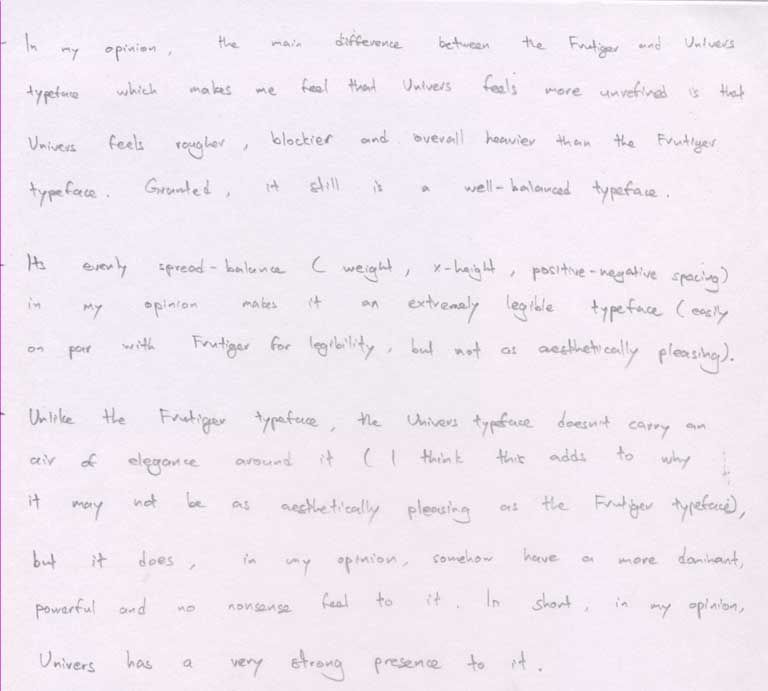 - In my opinion, the main difference between the Frutiger and Univers
typeface which makes me feel that Univers feels more unrefined is that
Univers feels rougher, blockier and overall heavier than the Frutiger
typeface. Granted, it still is a well-balanced typeface.
- Its evenly spread-balance (weight, x-height, positive-negative spacing)
in my opinion makes it an extremely legible typeface (easily
on par with Frutiger for legibility, but not as aesthetically pleasing).
- Unlike the Frutiger typeface, the Univers typeface doesn't carry an
air of elegance around it (I think this adds to why
it may not be as aesthetically pleasing as the Frutiger typeface),
but it does, in my opinion, somehow have a more dominant,
powerful and no nonsense feel to it. In short, in my opinion,
Univers has a very strong presence to it.